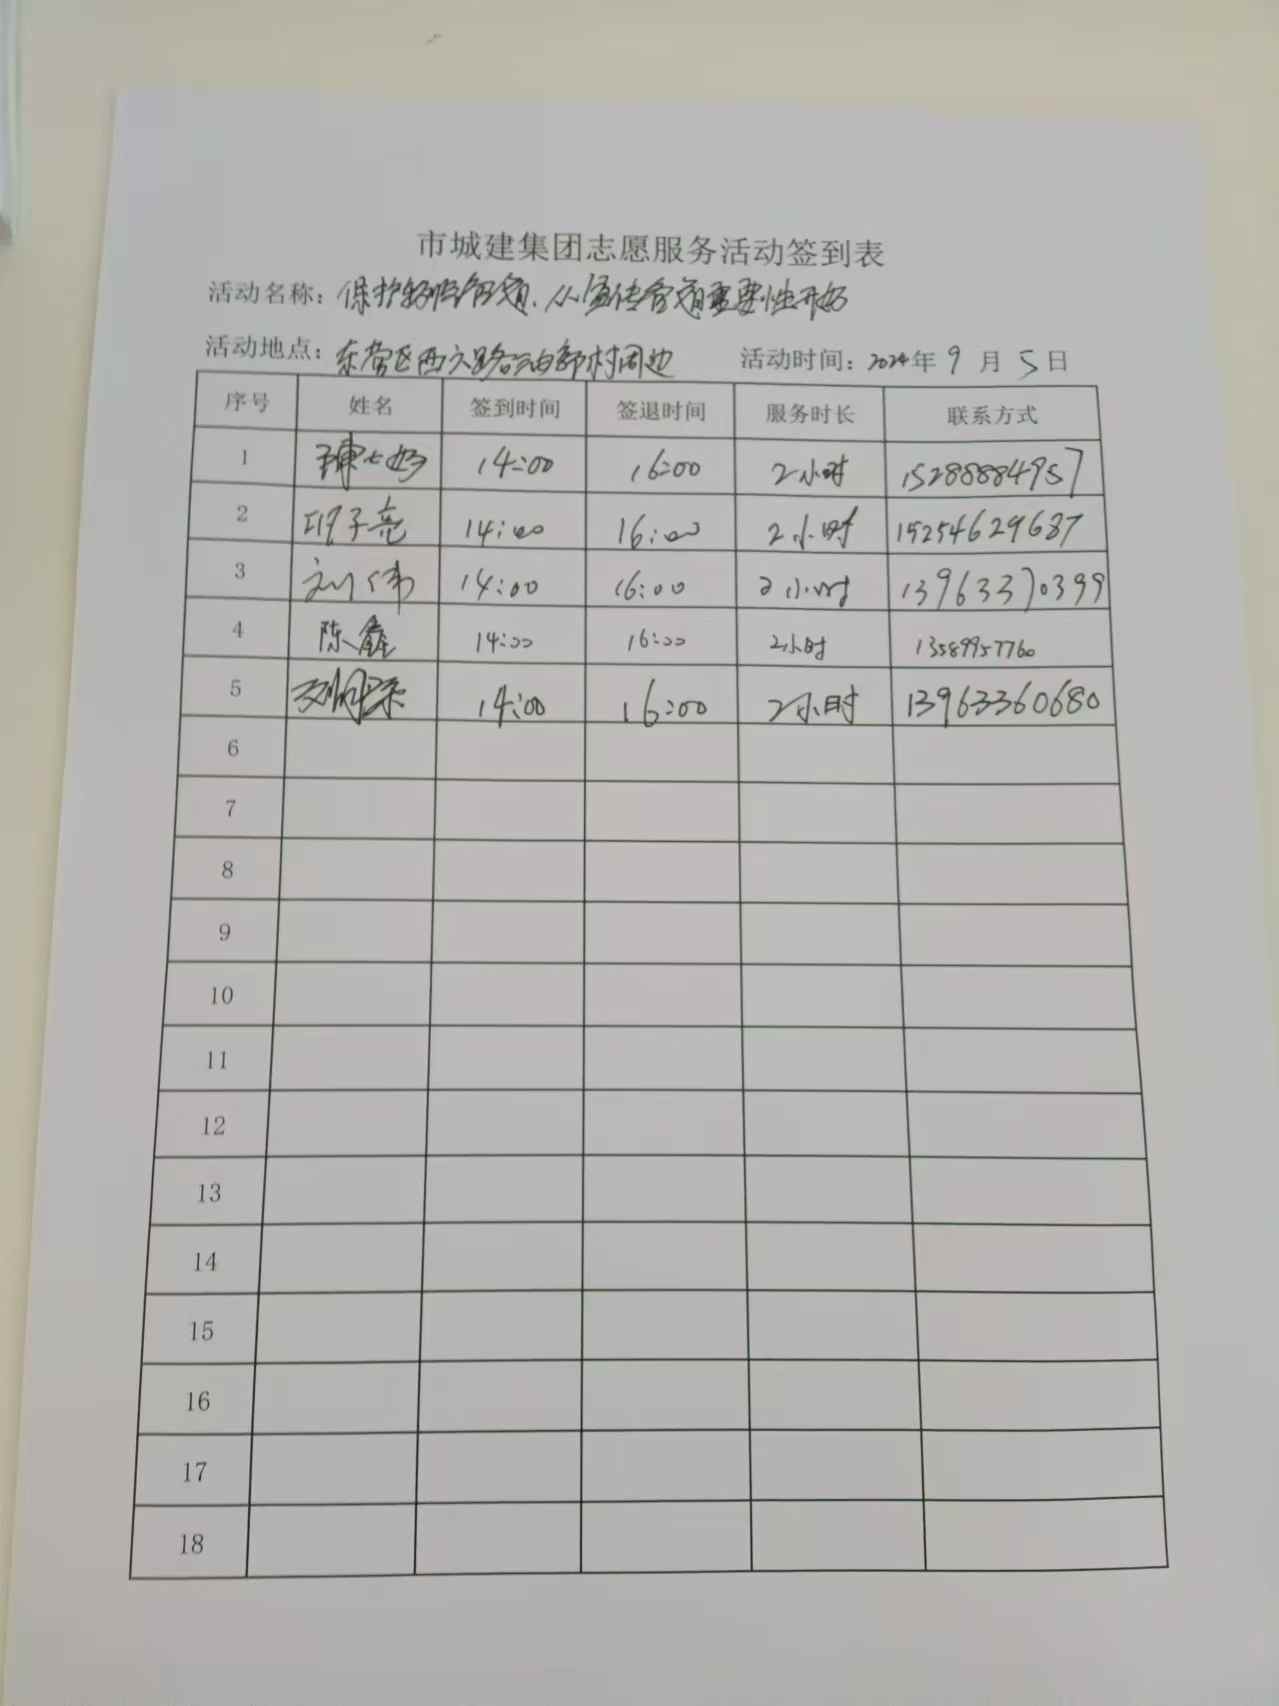 市城建集团志愿服务活动签到表
活动名称：保护 管道、从宣传管道重要性开始
活动地点：东营区西六路 村周边 活动时间：2024年9月5日
序号 姓名 签到时间 签退时间 服务时长 联系方式
1 14:00 16:00 2小时 15288884957
2 子亮 14:00 16:00 2小时 15254629687
3 刘伟 14:00 16:00 2小时 13963370399
4 陈鑫 14:00 16:00 2小时 13589957760
5 14:00 16:00 2小时 13963360680
6
7
8
9
10
11
12
13
14
15
16
17
18